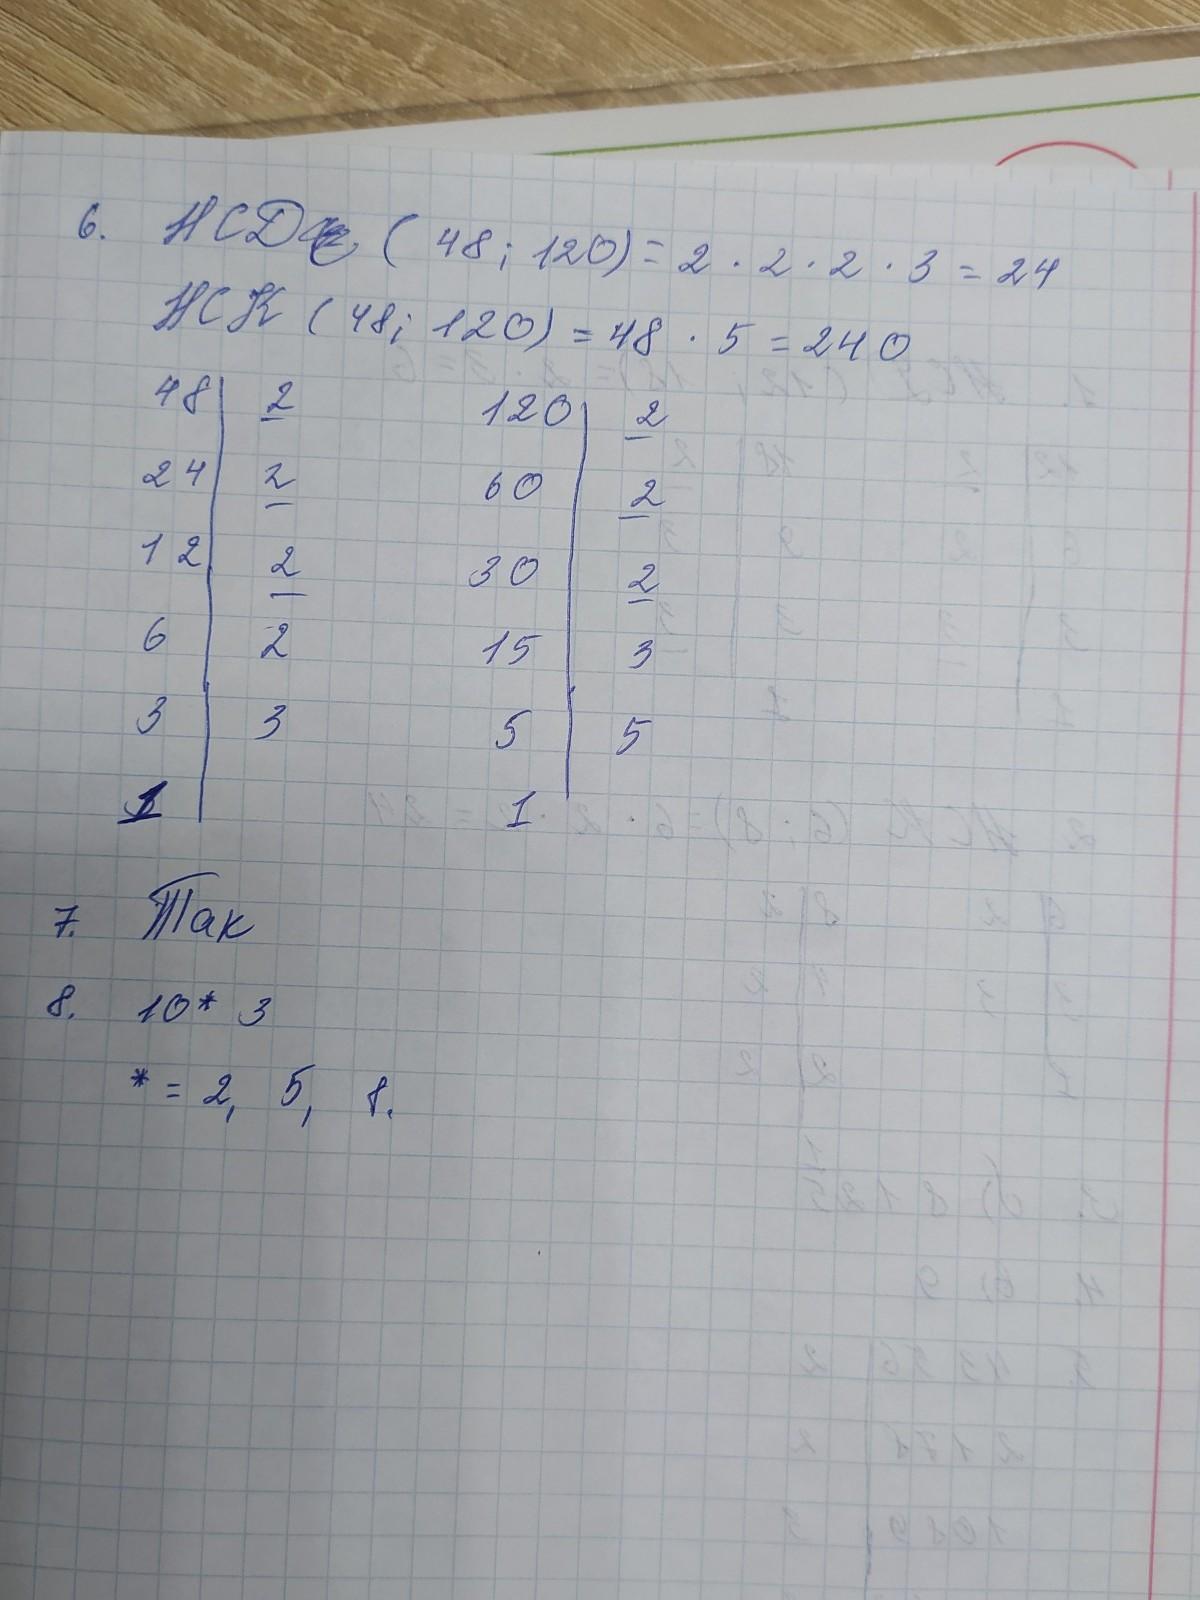 6. НСД (48; 120) = 2 · 2 · 2 · 3 = 24
НСК (48; 120) = 48 · 5 = 240
48 | 2 120 | 2
24 | 2 60 | 2
12 | 2 30 | 2
6 | 2 15 | 3
3 | 3 5 | 5
1 | 1
7. Так
8. 10* 3
* = 2, 5, 8.